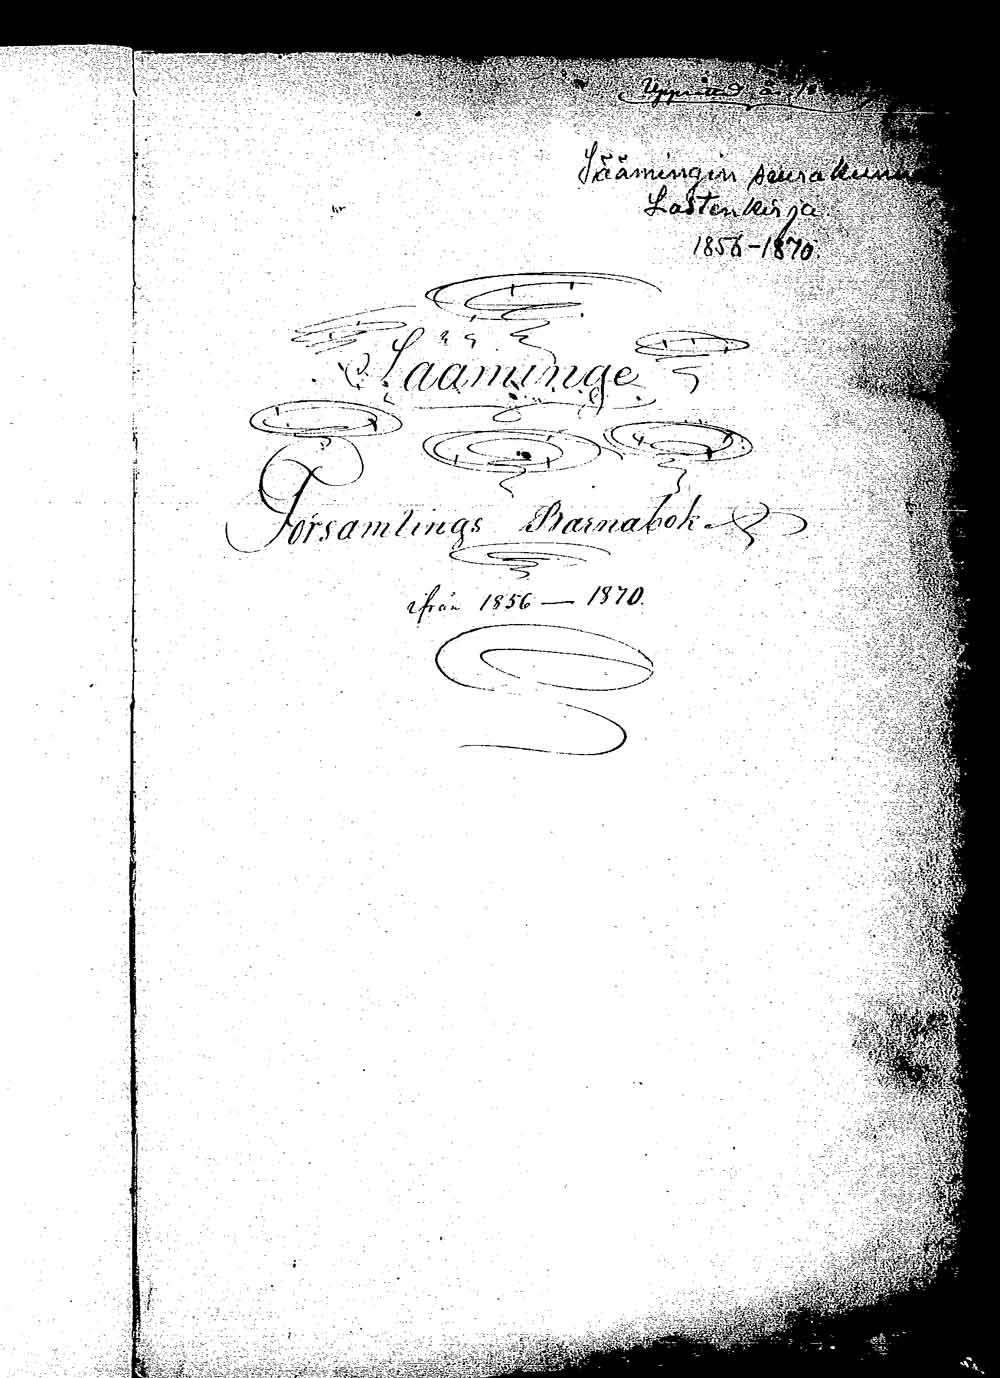 Upprättad år
Säämingin seurakunn
Lastenkirja.
1856-1870.
Sääminge
Församlings Barnabok
ifrån 1856 — 1870.